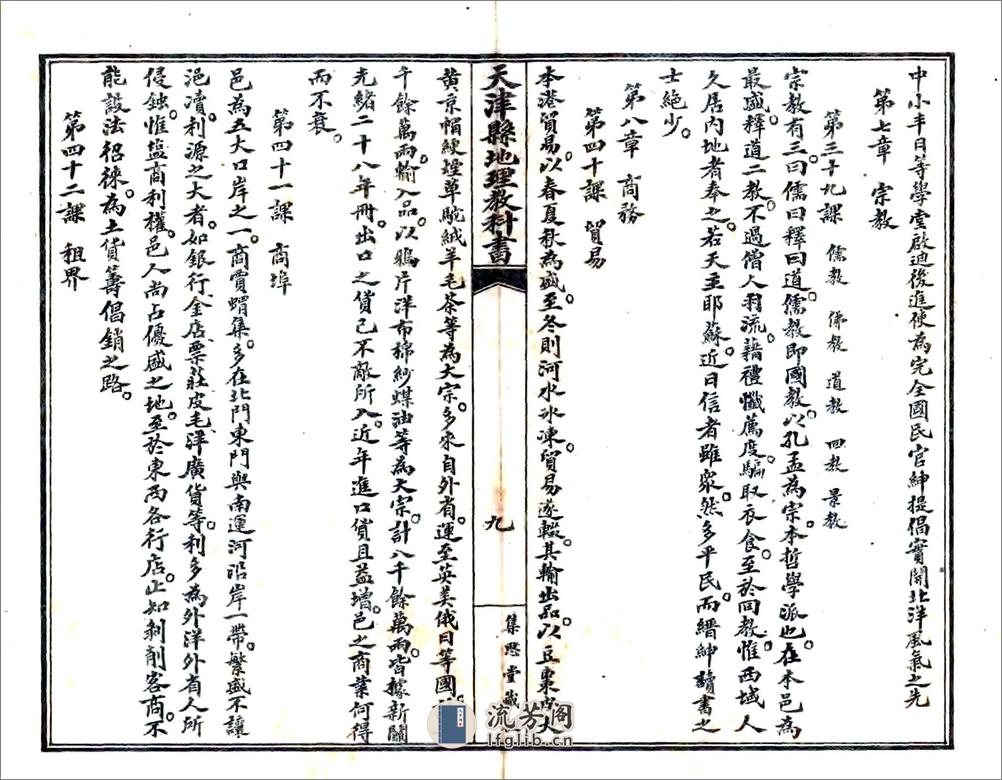 中小半日等學堂啟迪後進使為完全國民官紳提倡實開北洋風氣之先
第七章 宗教
第三十九課 儒教 佛教 道教 回教 景教
宗教有三。曰儒曰釋曰道。儒教即國教。以孔孟為宗。本哲學派也。在本邑為
最盛。釋道二教。不過僧人羽流。藉禮懺薦度。騙取衣食。至於回教。惟西域人
久居內地者奉之。若天主耶蘇。近日信者雖眾。然多平民。而縉紳讀書之
士絶少。
第八章 商務
第四十課 貿易
本港貿易。以春夏秋為盛。至冬則河水冰凍。貿易遂輟。其輸出品。以豆棗
天津縣地理教科書
九
集思堂藏
黄京帽綆煙草駝絨羊毛茶等為大宗。多來自外省。運至英美俄日等國。
千餘萬兩。輸入品。以鴉片洋布棉紗煤油等為大宗。計八千餘萬兩。皆據新關
光緒二十八年冊。出口之貨已不敵所入。近年進口貨且益增。邑之商業何得
而不衰。
第四十一課 商埠
邑為五大口岸之一。商賈蝟集。多在北門東門與南運河沿岸一帶。繁盛不讓
滬瀆。利源之大者。如銀行金店票莊皮毛洋廣貨等。利多為外洋外省人所
侵蝕。惟塩商利權。邑人尚占優盛之地。至於東西各行店。止知剝削客商。不
能設法招徠。為土貨籌倡銷之路。
第四十二課 租界
流芳阁
lfglib.cn